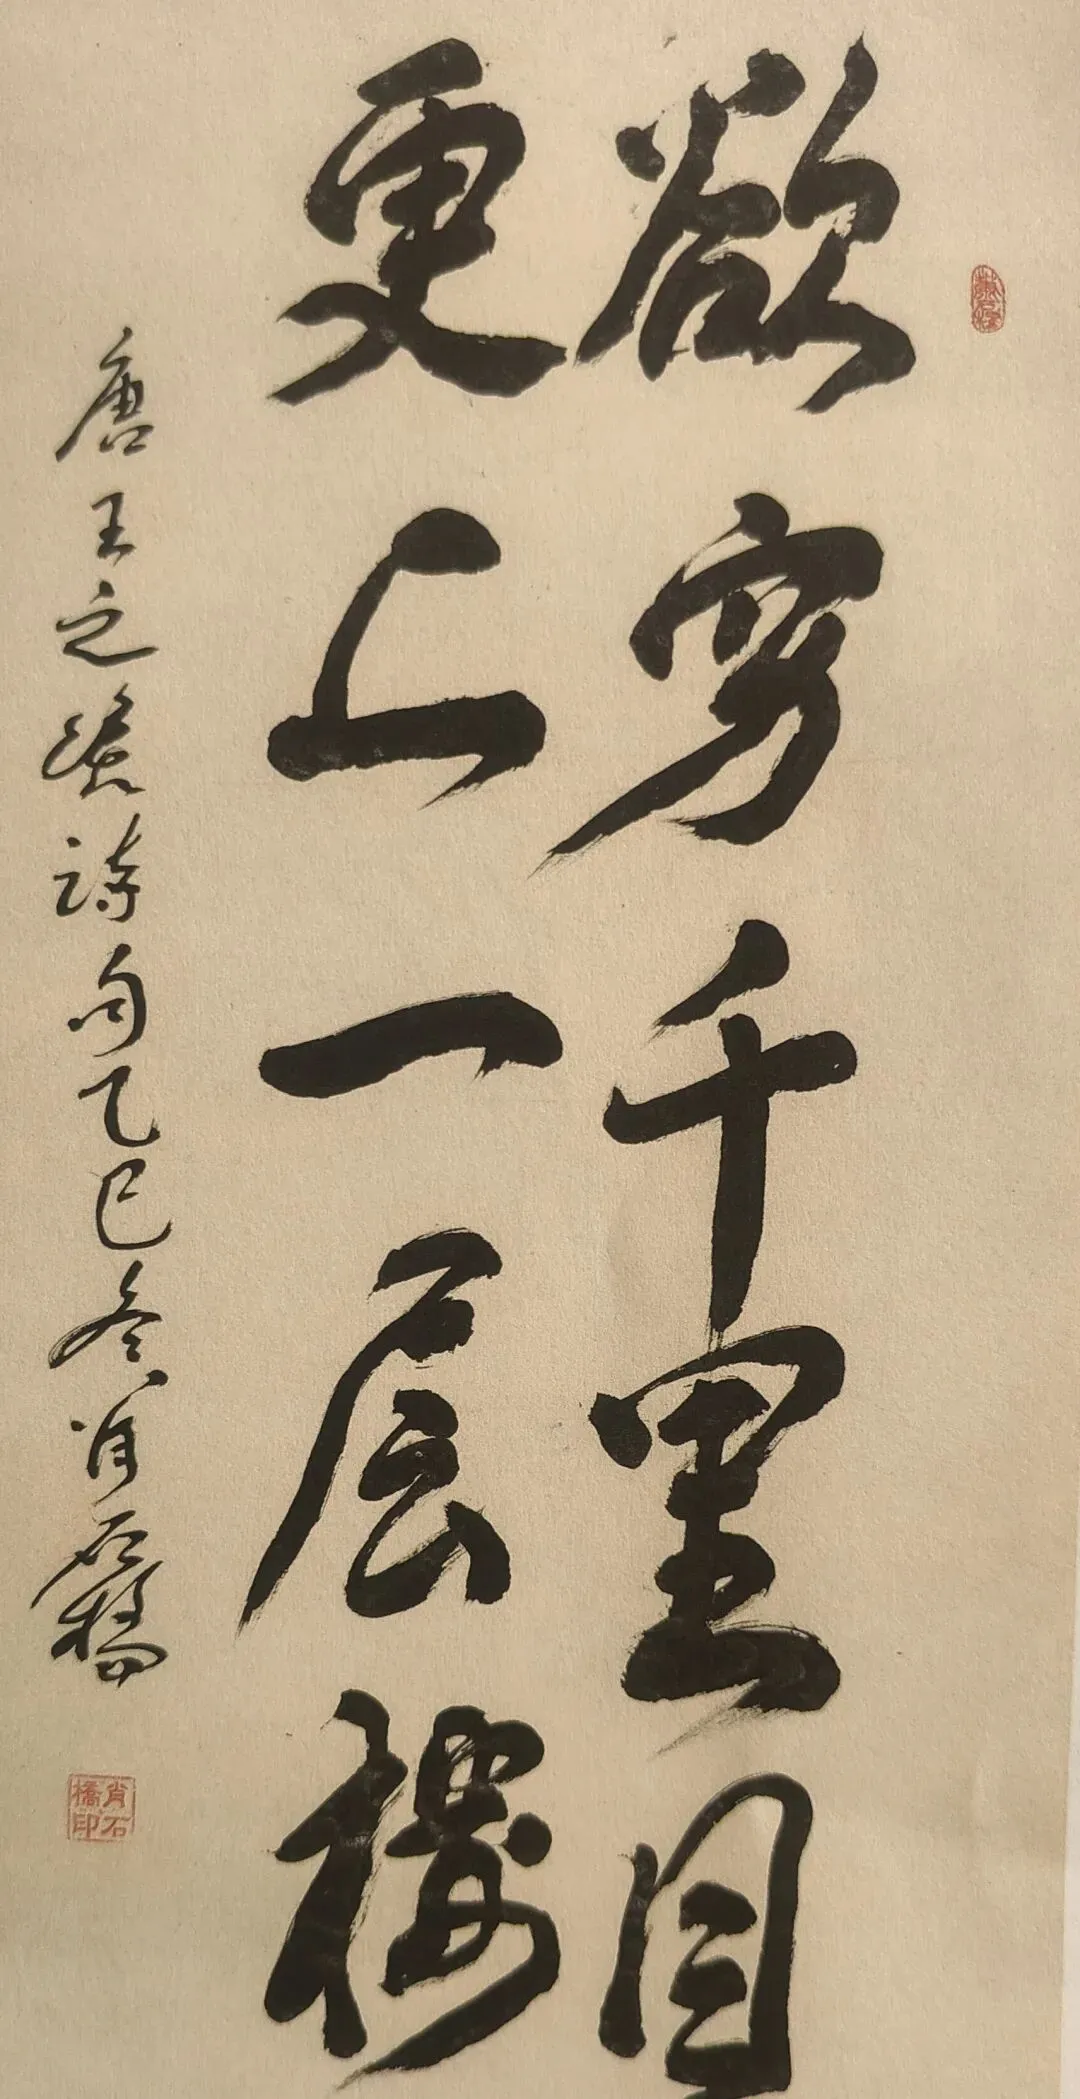 欲穷千里目
更上一层楼
唐王之涣诗句乙巳冬肖石橋
肖石橋印